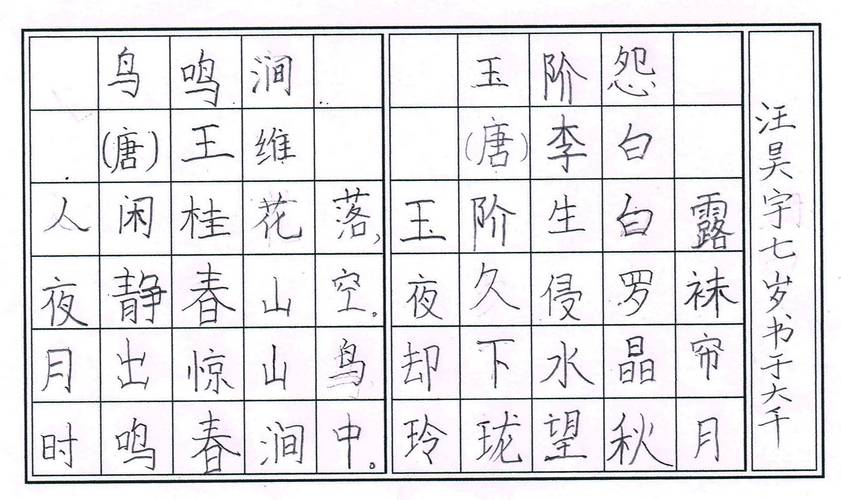 鸟鸣涧
(唐)王维
人闲桂花落,
夜静春山空。
月出惊山鸟
时鸣春涧中。
玉阶怨
(唐)李白
玉阶生白露
夜久侵罗袜
却下水晶帘
玲珑望秋月
汪昊宇七岁书于大千